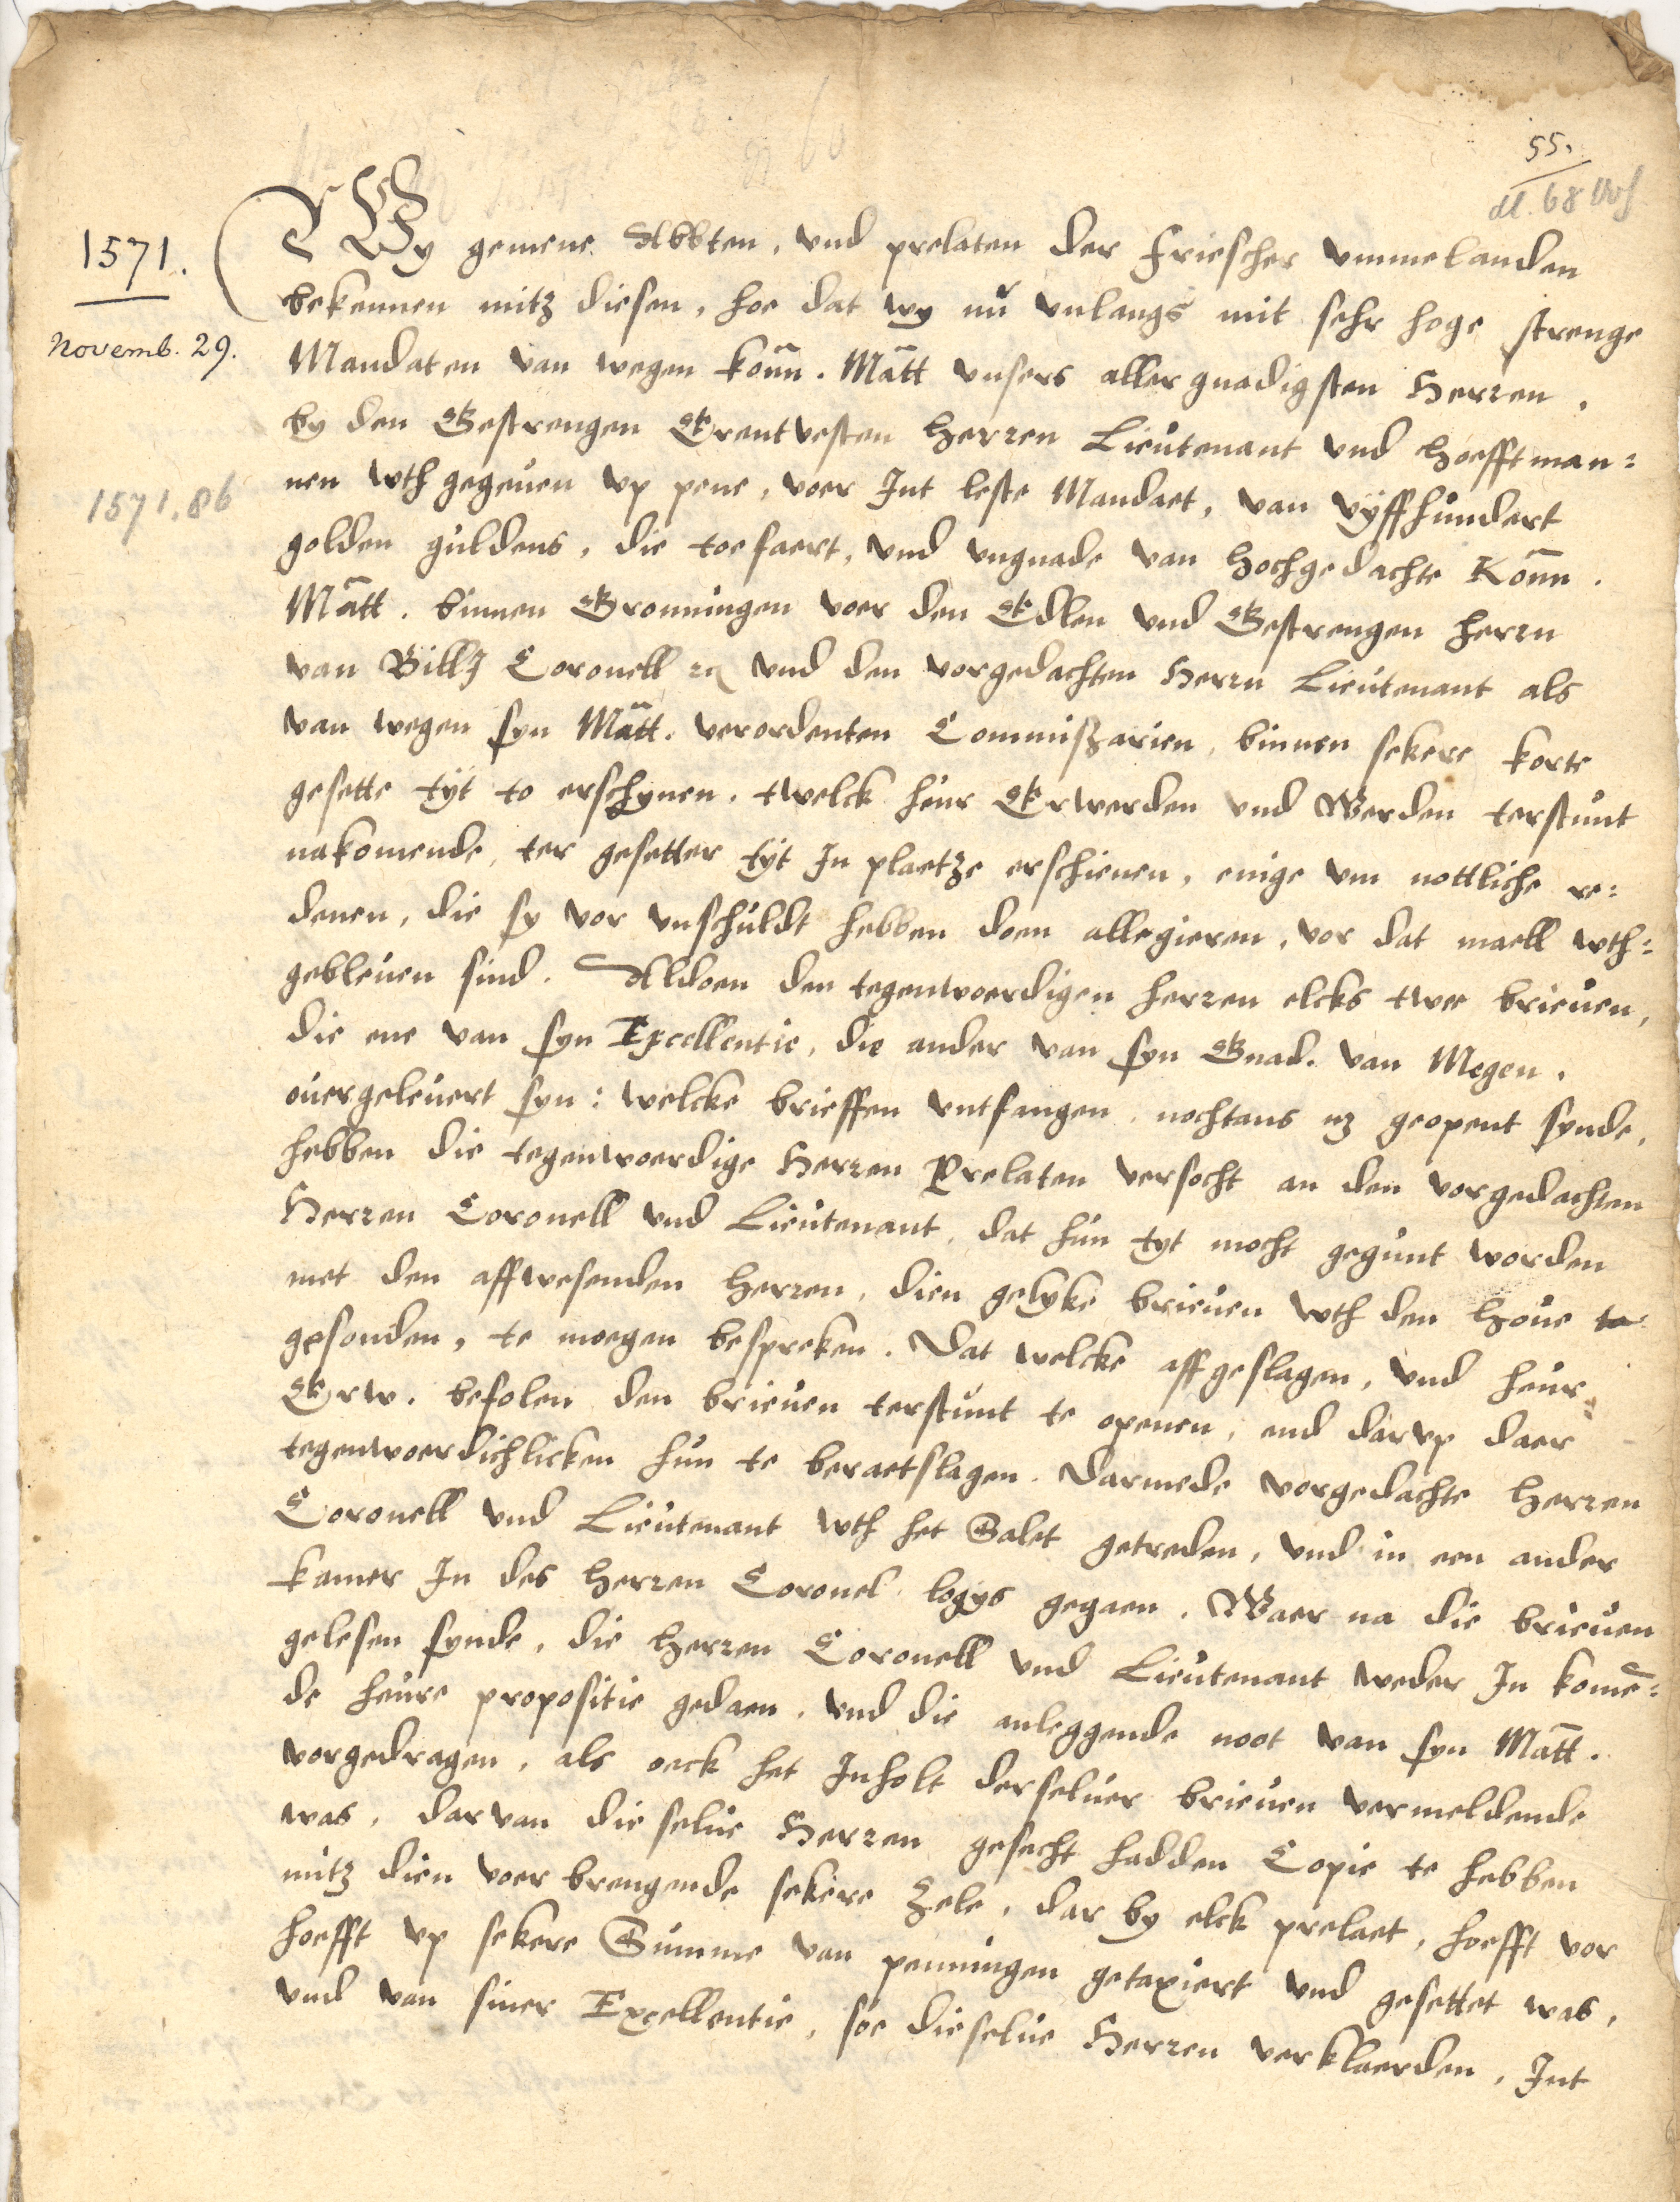 55.
dl. 68
1571.
Novemb. 29.
1571.86
Wy gemene Abbten, vnd prelaten der friescher vmmelanden
bekennen mitz diesen, hoe dat wy nŭ vnlangs mit sehr hoge strenge
Mandaten van wegen Kōnn. Mātt vnsers aller gnadigsten Herren,
by den Gestrengen Erentvesten Herren Lieŭtenant vnd Hoefftman=
nen wth gegeŭen vp pene, voer Int leste Mandaet, van vyffhŭndert
golden gŭldens, die toefaert, vnd vngnade van Hochgedachte Kōnn.
Mātt. binnen Gronningen voer den Edlen vnd Gestrengen Herrn
van Billÿ Coronell rc vnd den vorgedachten Herrn Lieŭtenant als
van wegen syn Mātt. verordenten Commissarien, binnen sekere korte
gesette tyt to erschynen. twelck heur Erwerden vnd Werden terstŭnt
nakomende, ter gesetter tyt In plaetze erschienen, enige vm nottliche re=
denen, die sy vor vnschŭldt hebben doen allegieren, vor dat maell wth=
gebleŭen sind. Aldoen den tegenwoerdigen Herren elcks twee brieŭen,
die ene van syn Excellentie, die ander van syn Gnad. van Megen.
oŭergeleŭert syn: welcke brieffen vntfangen, nochtans nz geopent synde,
hebben die tegenwoerdige Herren Prelaten versocht an den vorgedachten
Herren Coronell vnd Lieŭtenant, dat hŭn tyt mocht gegŭnt worden
met den affwesenden Herren, dien gelyke brieŭen wth den Hoŭe to
gesonden, te moegen bespreken. Dat welcke affgeslagen, vnd heŭr
Erw. befolen den brieŭen terstŭnt te openen, end darvp daer
tegenwoerdichlicken hŭn te beraetslagen. Darmede vorgedachte Herren
Coronell vnd Lieŭtenant wth het Salet getreden, vnd in een ander
kamer In des Herren Coronel logys gegaen. Waer na die brieŭen
gelesen synde, die Herren Coronell vnd Lieŭtenant weder In komē=
de heŭre propositie gedaen, vnd die anleggende noot van syn Mātt.
vorgedragen, als oeck het Inholt derselŭer brieŭen vermeldende
was, darvan die selŭe Herren gesecht hadden Copie te hebben
mitz dien voer brengende sekere zele, dar by elck prelaet, hoefft vor
hoefft vp sekere Sŭmme van penningen getaxiert vnd gesettet was,
vnd van siner Excellentie, soe dieselŭe Herren verklaerden, Int